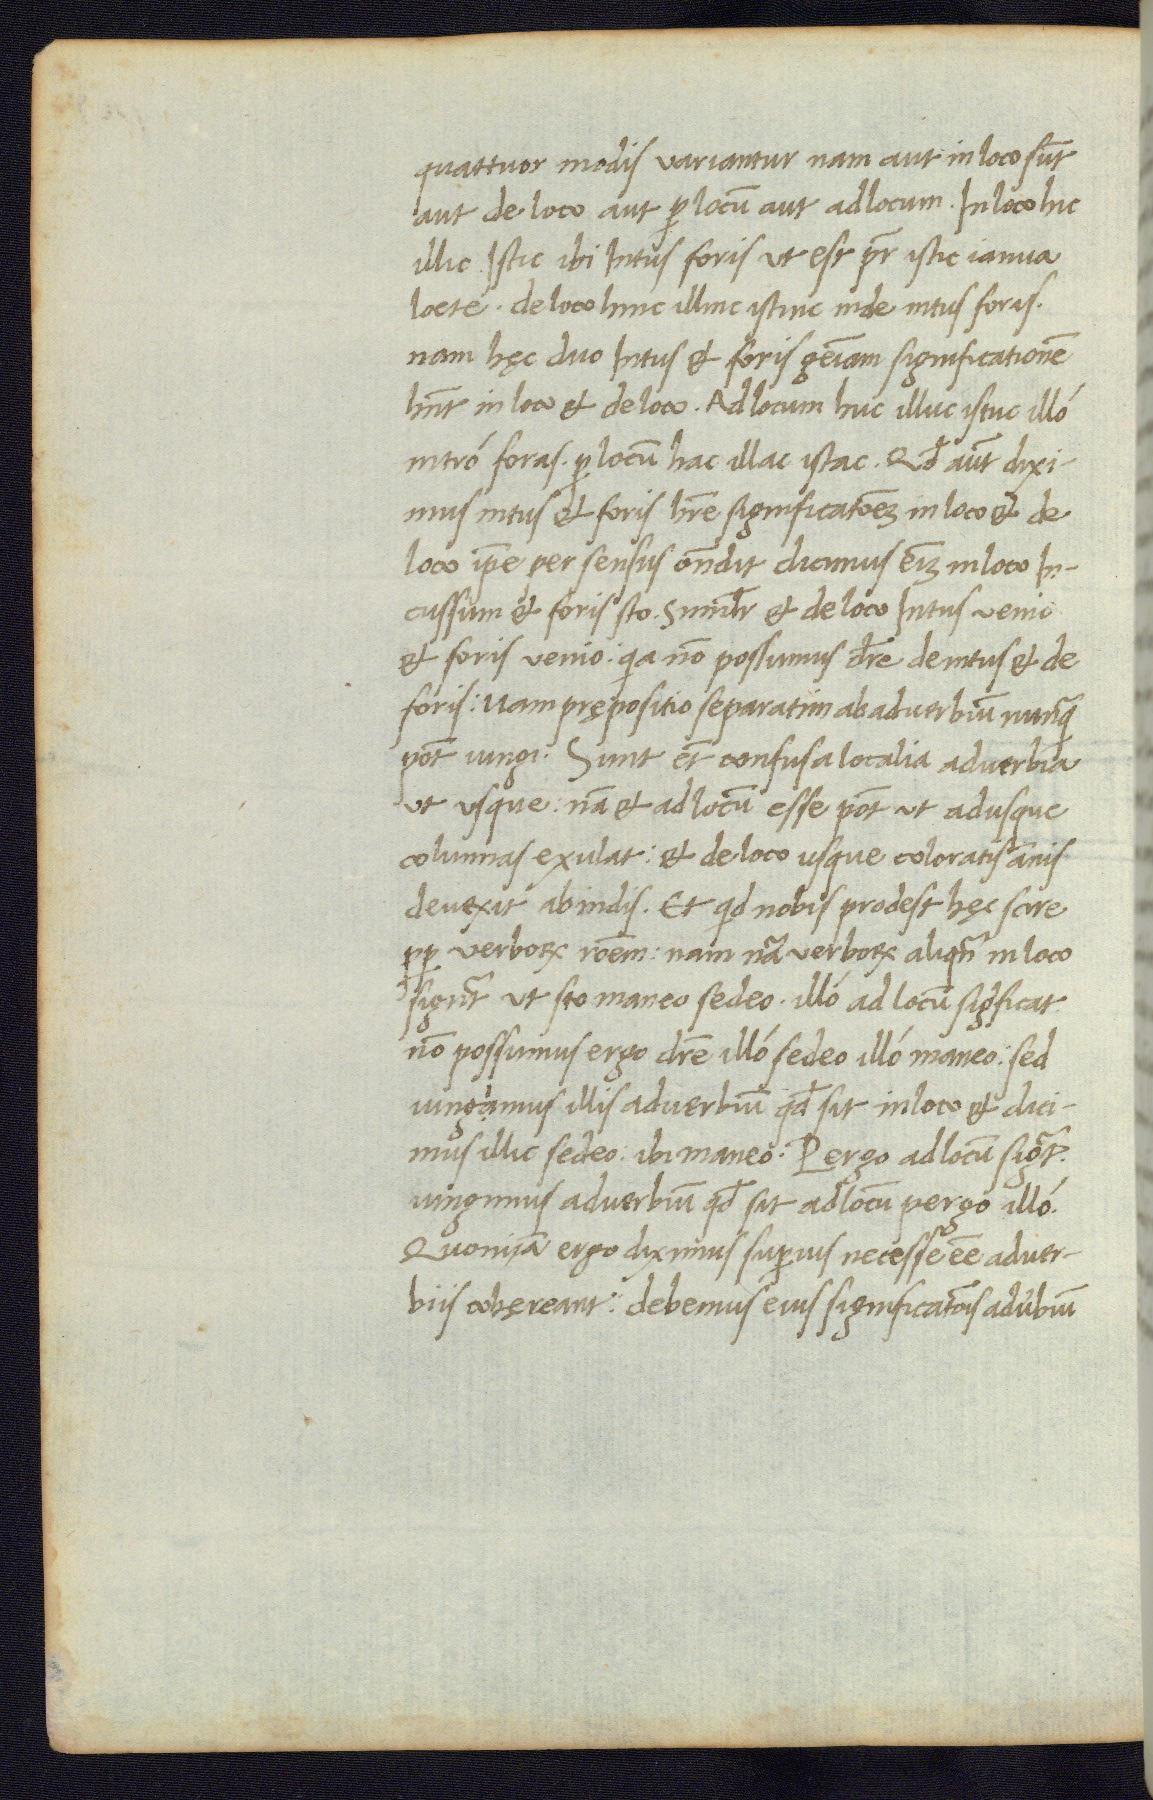 quattuor modis variantur nam aut in loco su̅t
aut de loco aut ꝑ locu̅ aut ad locum. In loco hic
illic Istic ibi Intus foris ut est pr̅ istic ianua
loete. de loco hinc illinc istinc inde intus foris.
nam hęc duo Intus & foris ge̅iam significatione̅
hn̅t in loco & de loco. Ad locum huc illuc istuc illó
intró foras. ꝑ locu̅ hac illac istac. Qđ aut̅ dixi-
mus intus & foris hr̅e significato̅eꝫ in loco & de
loco ip̅e per sensus on̅dit dicimus e̅iꝫ in loco In-
cussum & foris sto. Simil̅r & de loco Intus venio
& foris venio: qa no̅ possumus dr̅e de intus & de
foris: Nam prępositio separatim ab adverbiu̅ nunq̅
pot̅ iungi. Sunt et̅ confusa localia adverbia
ut usque: na̅ & ad locu̅ esse pot̅ ut adusque
columnas exulat: & de loco usque coloratis a̅nis
devexit ab indis. Et qd nobis prodest hęc scire
ꝓꝑ verboꝝ ro̅em: nam na̅ verboꝝ aliqn̅ in loco
sign̅t ut sto maneo sedeo. illó ad locu̅ sig̅ficat
no̅ possumus ergo dr̅e illó sedeo illó maneo: sed
iungamus illis adverbiu̅ qđ sit in loco & dici-
mus illic sedeo: ibi maneo: Pergo ad locu̅ sigt̅.
iungimus adverbiu̅ qđ sit ad locu̅ pergo illó.
Quonia̅ ergo diximus suꝑius necesse e̅e adver-
biis cohęreant: debemus eius significato̅is adu̅biu̅